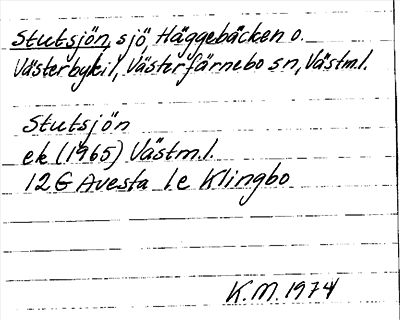 Stutsjön, sjö, Häggebäcken o.
Västerbykil, Västerfärnebo sn, Västm.l.
Stutsjön
ek (1965) Västm.l.
12G Avesta 1e Klingbo
K.M. 1974